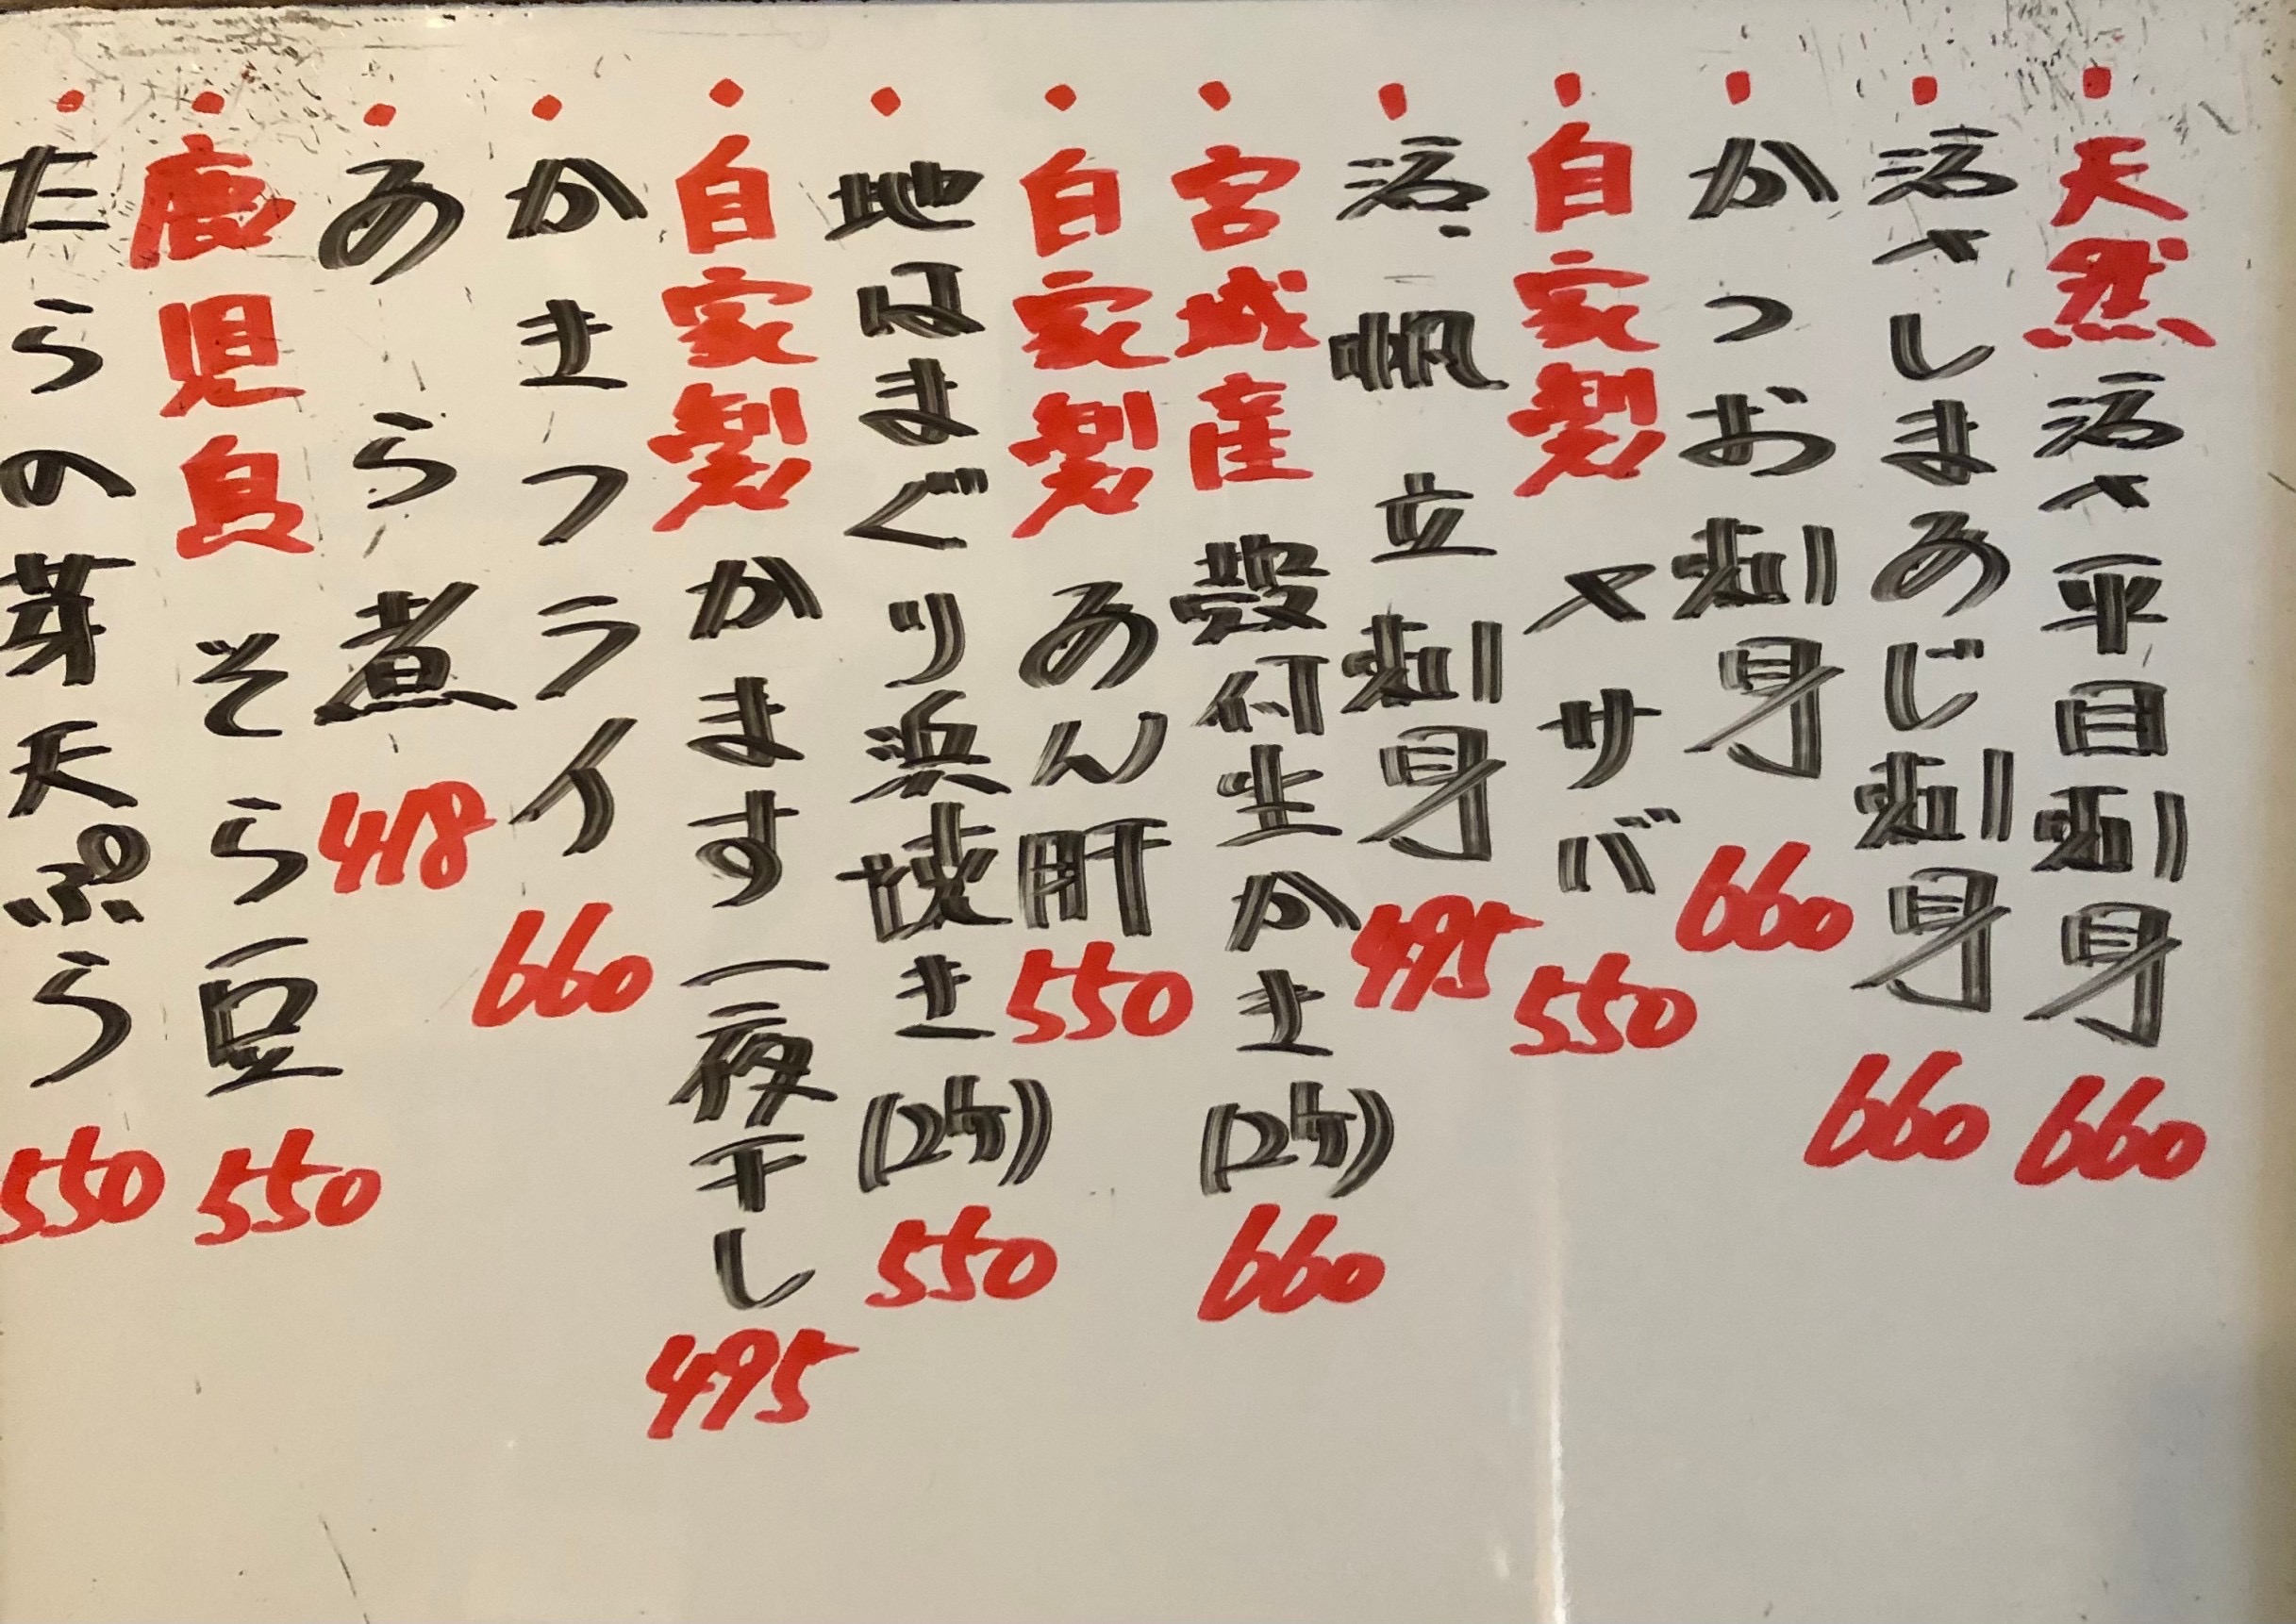 ・天然活〆平目刺身 660
・活〆しまあじ刺身 660
・かつお刺身 660
・自家製〆サバ 550
・活帆立刺身 495
・宮城産殻付生かき(2ケ) 660
・自家製あん肝 550
・地はまぐり浜焼き(2ケ) 550
・自家製かます一夜干し 495
・かきフライ 660
・あら煮 418
・鹿児島そら豆 550
・たらの芽天ぷら 550